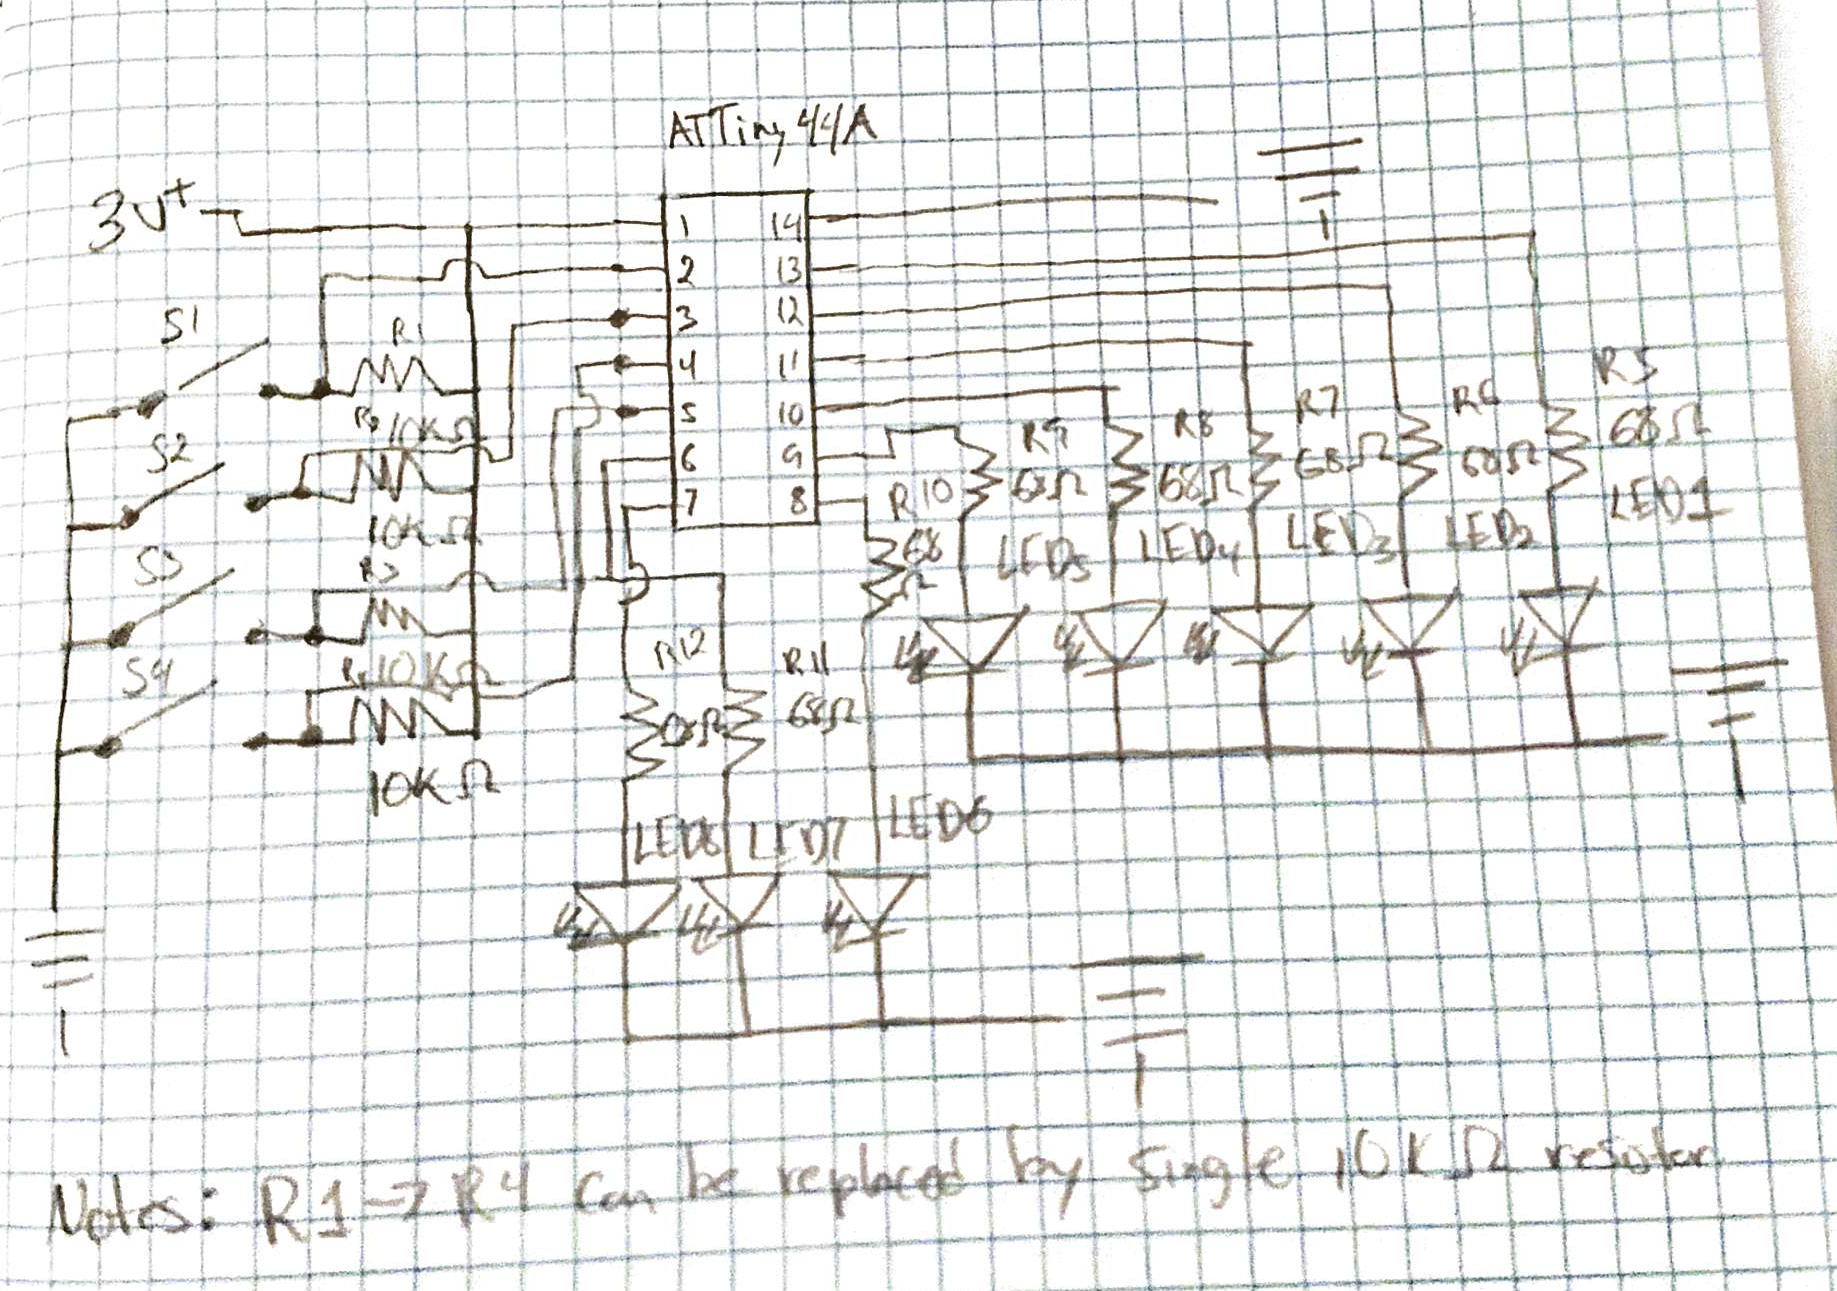 ATTiny44A
3V+
1 14
2 13
3 12
4 11
5 10
6 9
7 8
S1
R1
10KΩ
S2
R2
10KΩ
S3
R3
10KΩ
S4
R4
10KΩ
R5
68Ω
LED1
R6
68Ω
LED2
R7
68Ω
LED3
R8
68Ω
LED4
R9
68Ω
LED5
R10
68
Ω
LED6
R11
68Ω
LED7
R12
68Ω
LED8
Notes: R1→R4 can be replaced by single 10KΩ resistor